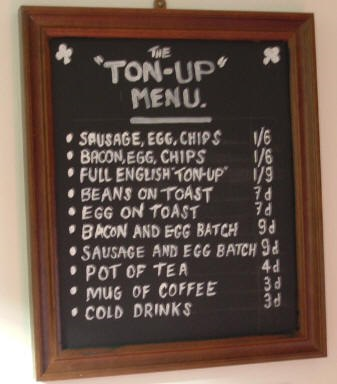 THE
"TON-UP"
MENU.
• SAUSAGE, EGG, CHIPS 1/6
• BACON, EGG, CHIPS 1/6
• FULL ENGLISH "TON-UP" 1/9
• BEANS ON TOAST 7d
• EGG ON TOAST 7d
• BACON AND EGG BATCH 9d
• SAUSAGE AND EGG BATCH 9d
• POT OF TEA 4d
• MUG OF COFFEE 3d
• COLD DRINKS 3d